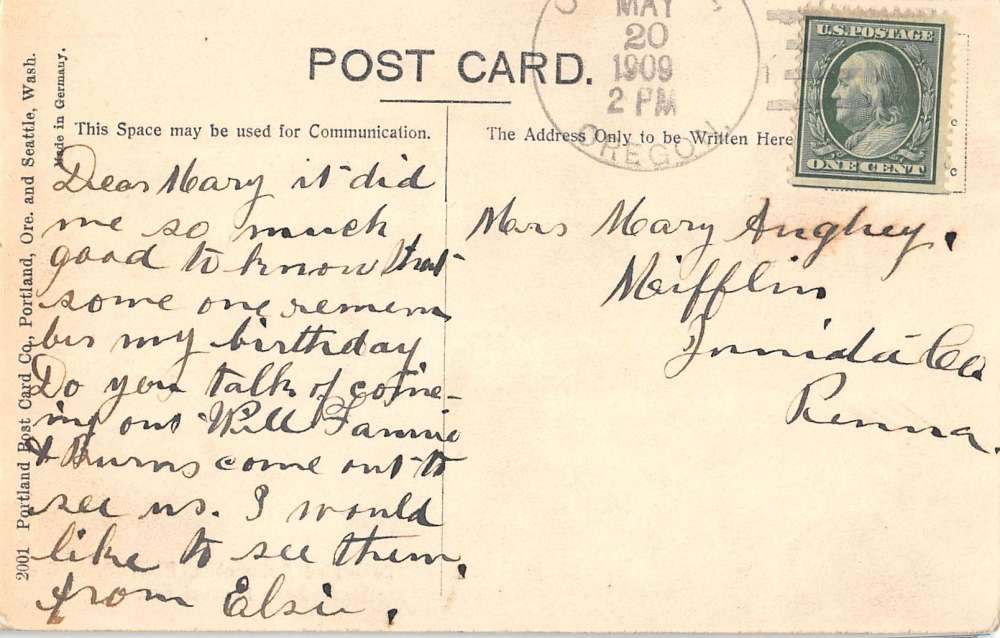 POST CARD.
MAY
20
1909
2 PM
OREGON.
U.S. POSTAGE
ONE CENT
This Space may be used for Communication.
The Address Only to be Written Here
2001 Portland Post Card Co., Portland, Ore. and Seattle, Wash.
Made in Germany.
Dear Mary it did
me so much
good to know that
some one remem
ber my birthday.
Do you talk of come-
ing out Will Fannie
& Burns come out to
see us. I would
like to see them.
from Elsie.
Mrs Mary Aughey.
Mifflin
Co
Penna.